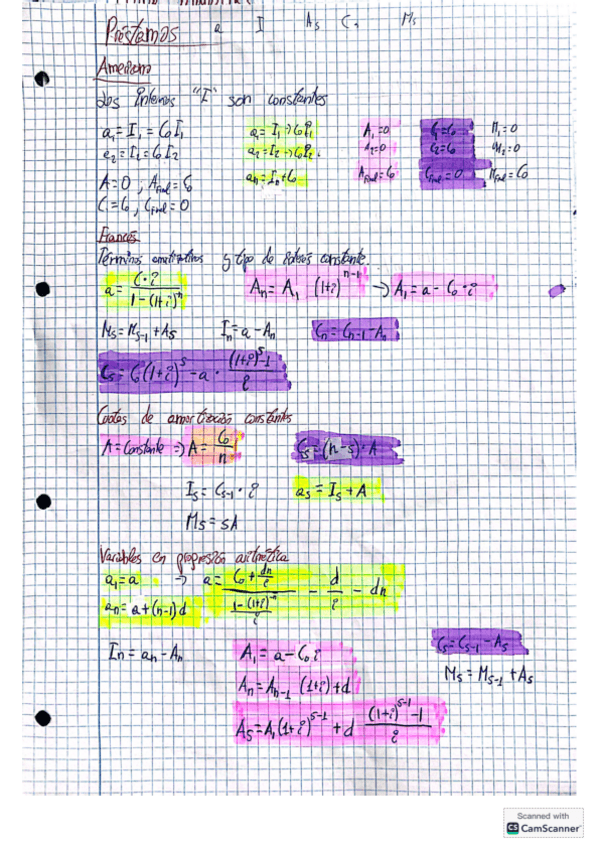 Préstamos a I As C. Ms
Americano
Los Intereses "I" son constantes
a₁ = I₁ = C₀I₁ a₁ = I₁ → C₀i₁ A₁ = 0 C₁ = C₀ M₁ = 0
a₂ = I₂ = C₀I₂ a₂ = I₂ → C₀i₂. A₂ = 0 C₂ = C₀ M₂ = 0
A = 0, A_final = C₀ aₙ = Iₙ + C₀ A_final = C₀ C_final = 0 M_final = C₀
C₁ = C₀, C_final = 0
Francés
Términos amortizativos y tipo de interés constante.
a = C·i / 1-(1+i)ⁿ Aₙ = A₁ (1+i)ⁿ⁻¹ → A₁ = a - C₀·i
Mₛ = Mₛ₋₁ + Aₛ Iₙ = a - Aₙ Cₙ = Cₙ₋₁ - Aₙ
Cₛ = C(1+i)ˢ - a · (1+i)ˢ-1 / i
Cuotas de amortización constantes
A = Constante => A = C₀ / n Cₛ = (n-s)·A
Iₛ = Cₛ₋₁ · i aₛ = Iₛ + A
Mₛ = sA
Variables en progresión aritmética
a₁ = a → a = C₀ + dn/i / 1-(1+i)⁻ⁿ/i - d/i - dn
aₙ = a + (n-1)d
Iₙ = aₙ - Aₙ A₁ = a - C₀ i Cₛ = Cₛ₋₁ - Aₛ
Aₙ = Aₙ₋₁ (1+i) + d Mₛ = Mₛ₋₁ + Aₛ
Aₛ = A₁(1+i)ˢ⁻¹ + d (1+i)ˢ⁻¹ - 1 / i
Scanned with
CS CamScanner